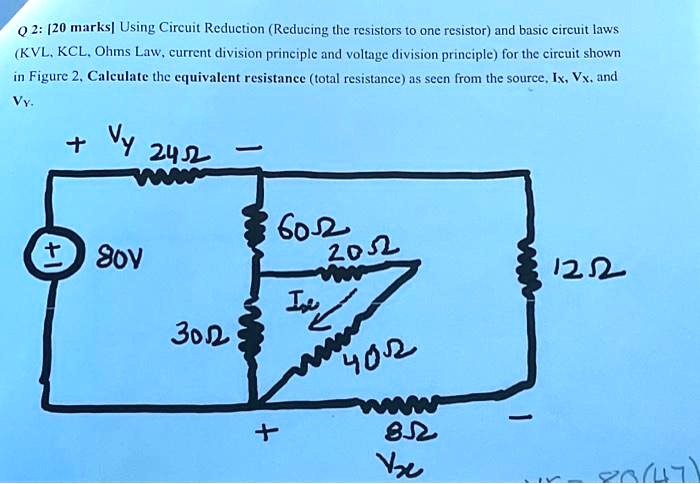 Q 2: [20 marks] Using Circuit Reduction (Reducing the resistors to one resistor) and basic circuit laws
(KVL, KCL, Ohms Law, current division principle and voltage division principle) for the circuit shown
in Figure 2, Calculate the equivalent resistance (total resistance) as seen from the source, Ix, Vx, and
VY.
+ Vy 24Ω −
60Ω
20Ω
+
−
80V
12Ω
Ix
30Ω
40Ω
+ 8Ω −
Vx
80(47)